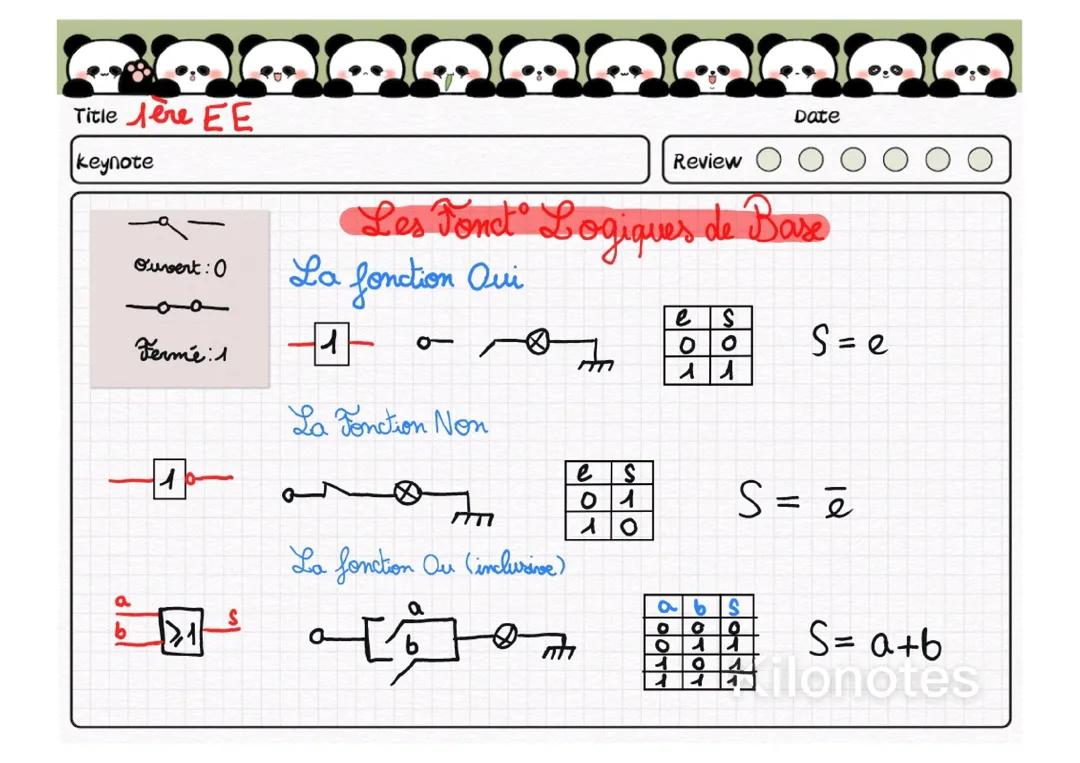 Title 1ère EE
Date
Keynote
Review
Les Fonct° Logiques de Base
Ouvert : 0
Fermé : 1
La fonction Oui
1
e s
0 0
1 1
S = e
La Fonction Non
1
e s
0 1
1 0
S = e̅
La fonction Ou (inclusive)
a
b
≥1
s
a
b
a b s
0 0 0
0 1 1
1 0 1
1 1 1
S = a+b
Kilonotes